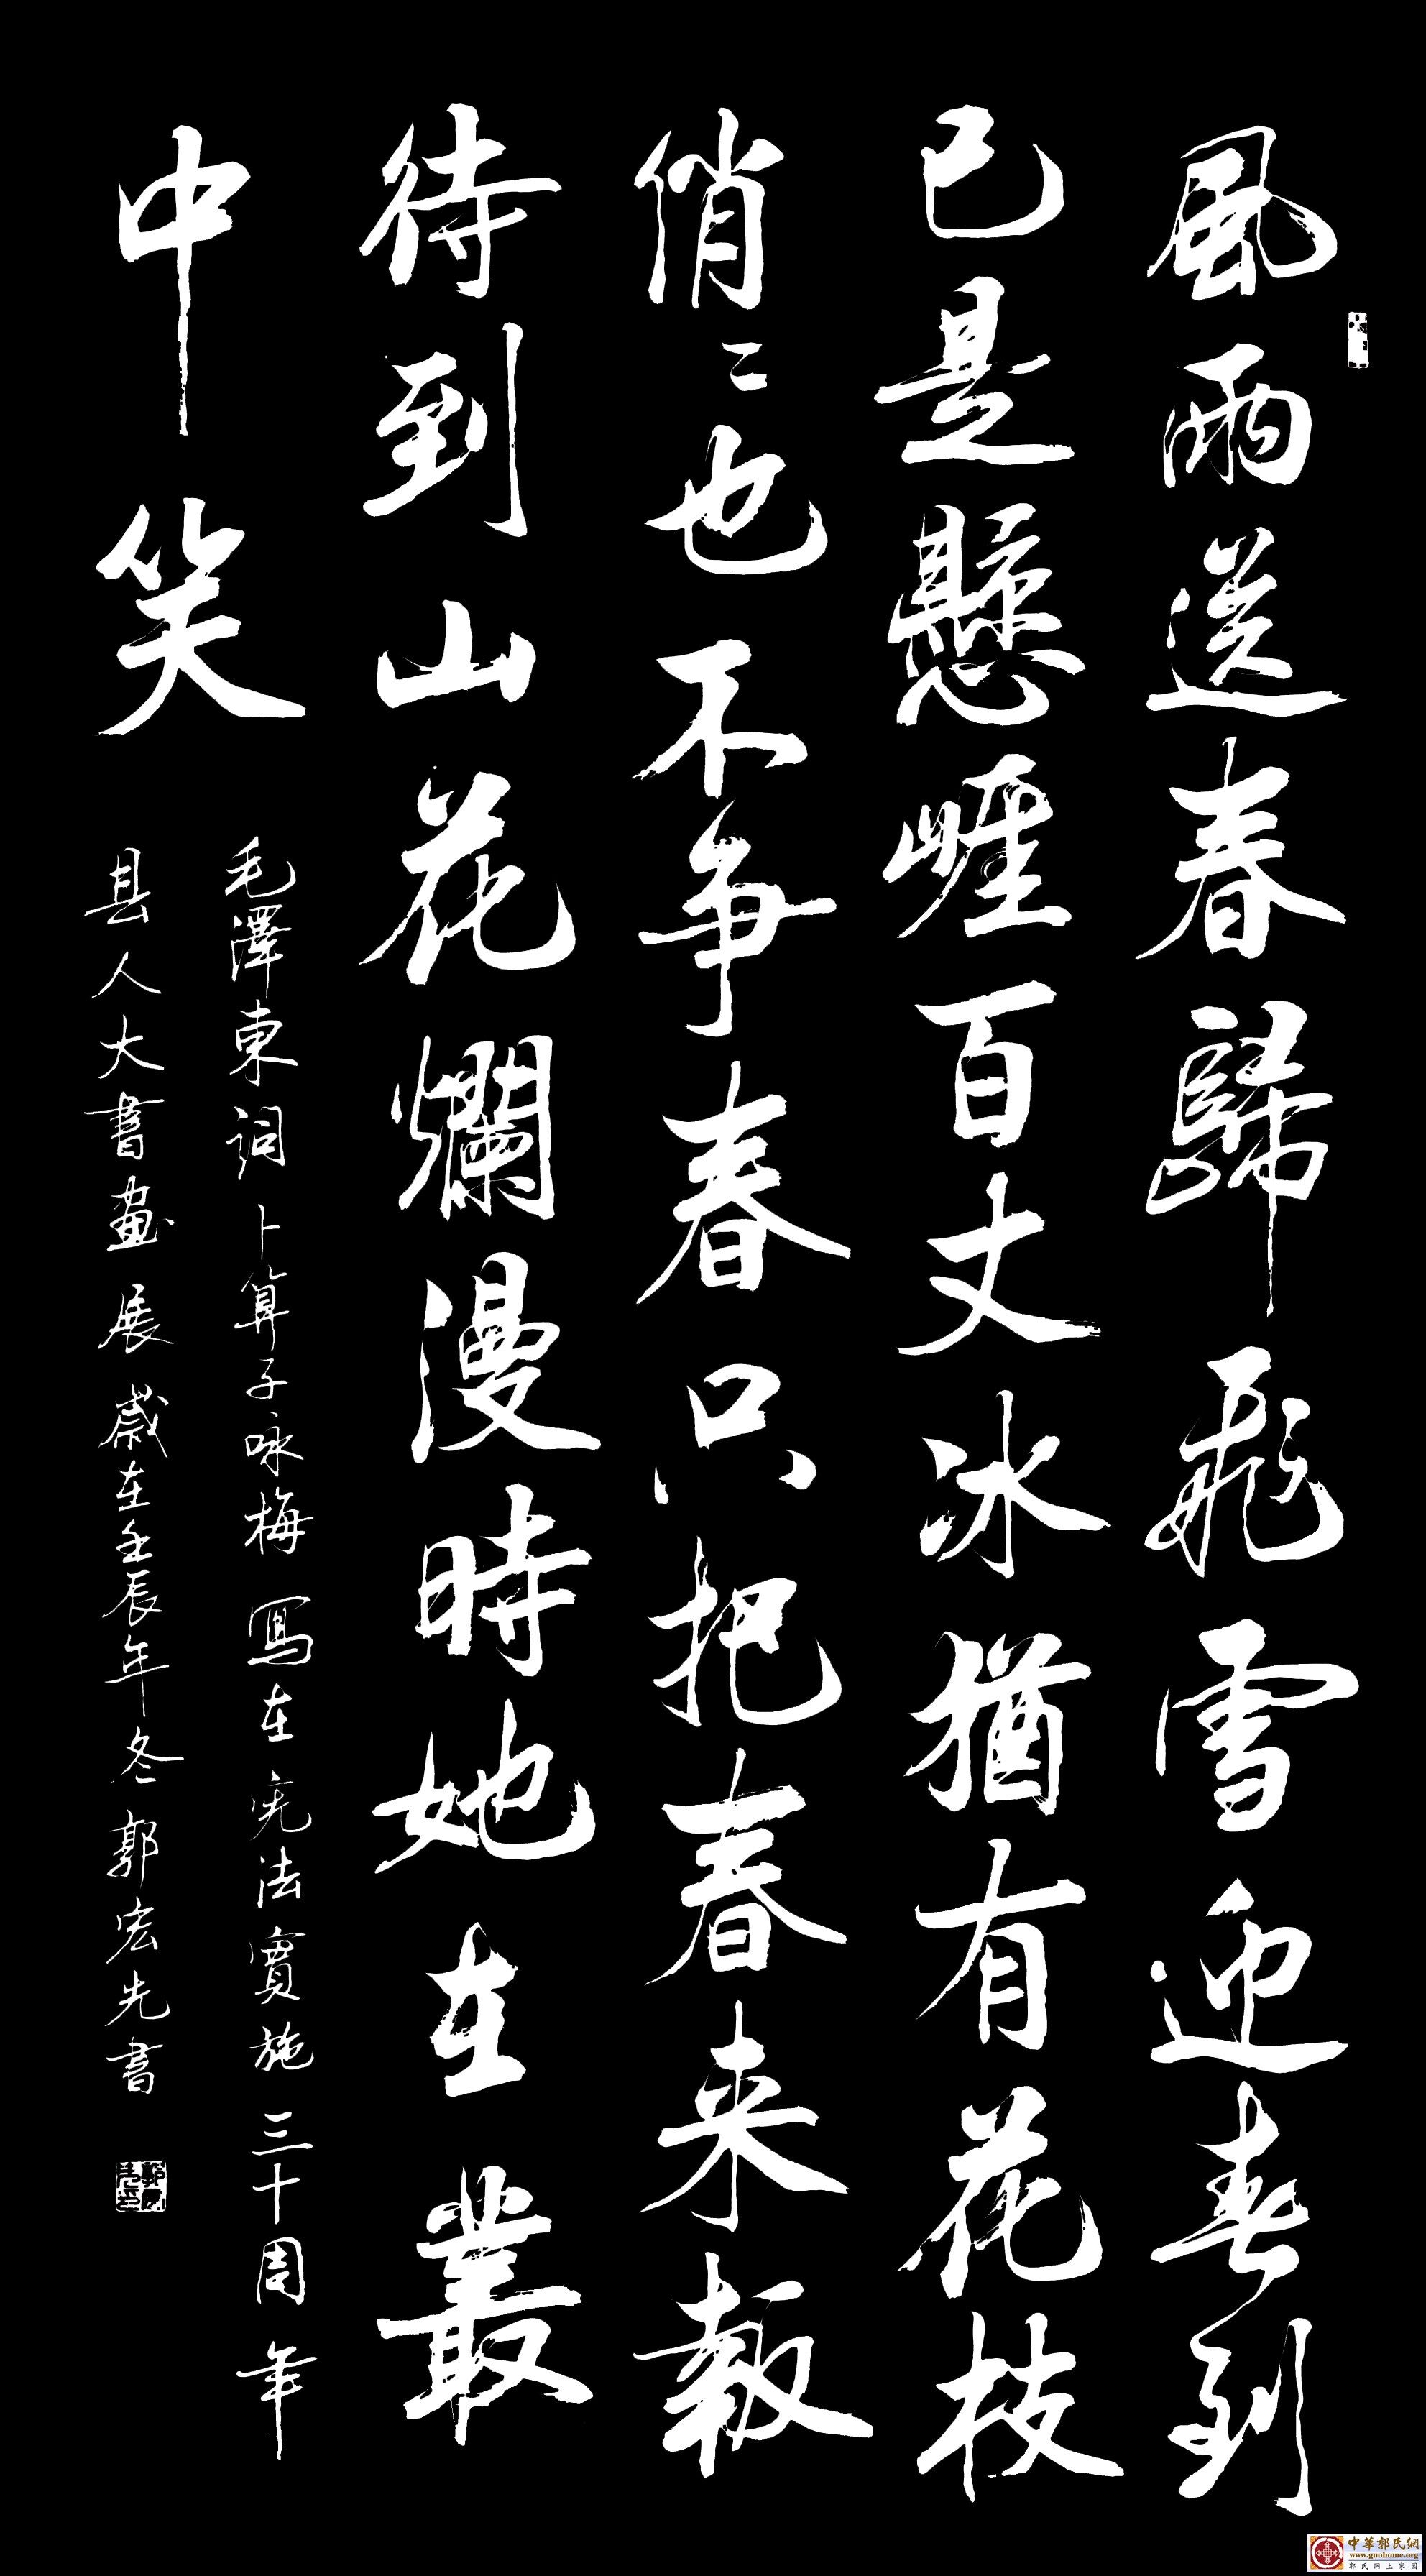 風雨送春歸飛雪迎春到
已是懸崖百丈冰猶有花枝
俏二也不争春只把春来報
待到山花爛漫時她在叢
中笑
毛澤東詞卜算子咏梅寫在宪法實施三十周年
县人大書畫展歲在壬辰年冬郭宏先書
中華郭氏網
www.guohome.org
郭氏网上家园